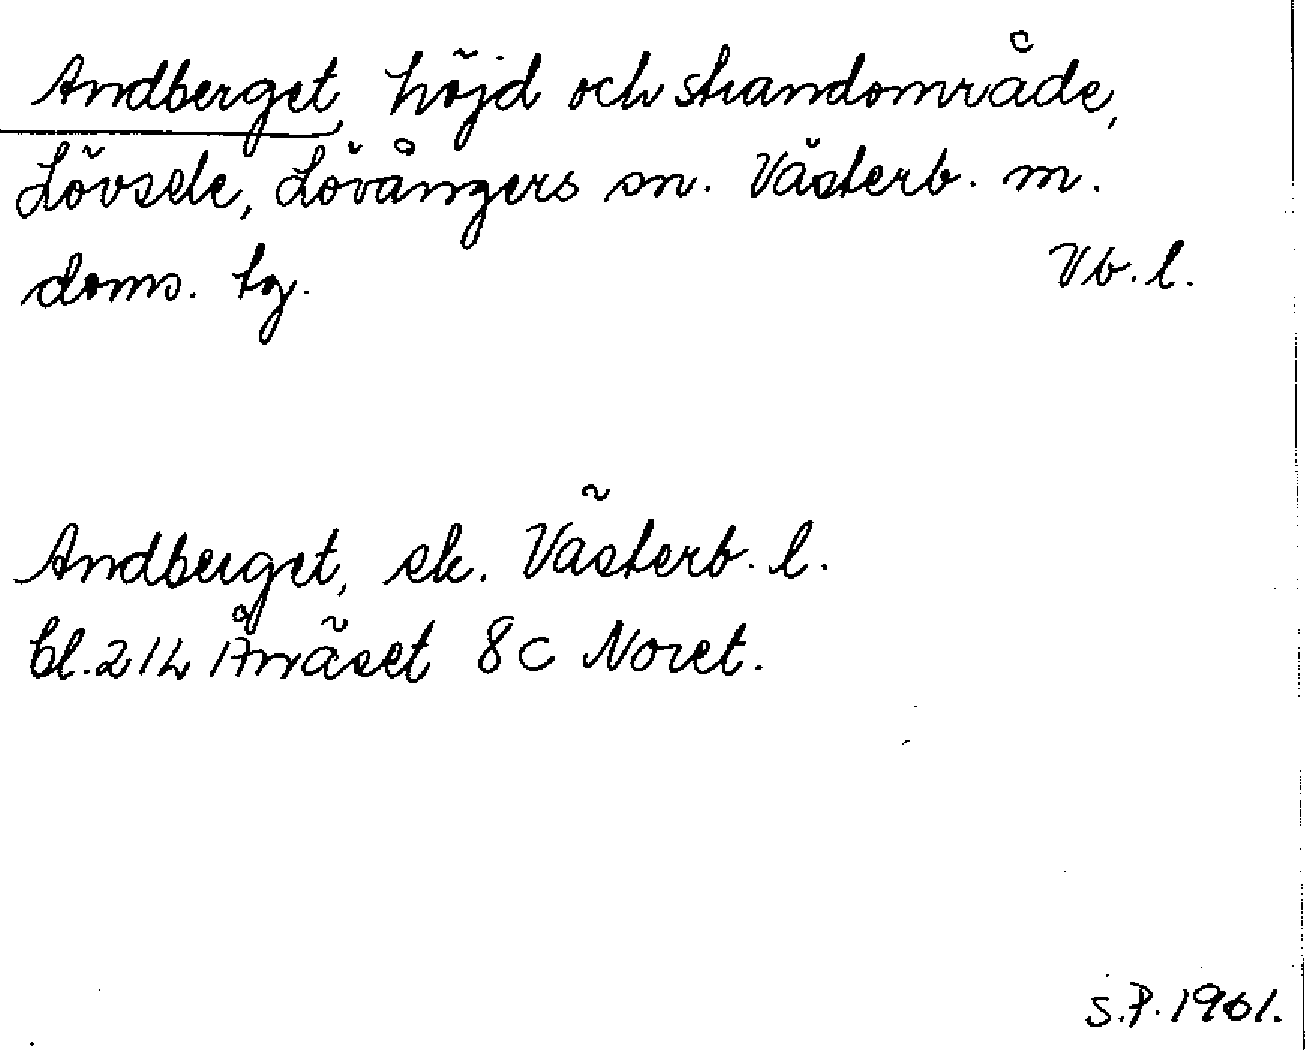 Andberget, höjd och strandområde,
Lövsele, Lövångers sn. Västerb. m.
doms. tg. Vb. l.
Andberget, ek. Västerb. l.
bl. 21L Ånäset 8c Noret.
S.P. 1961.